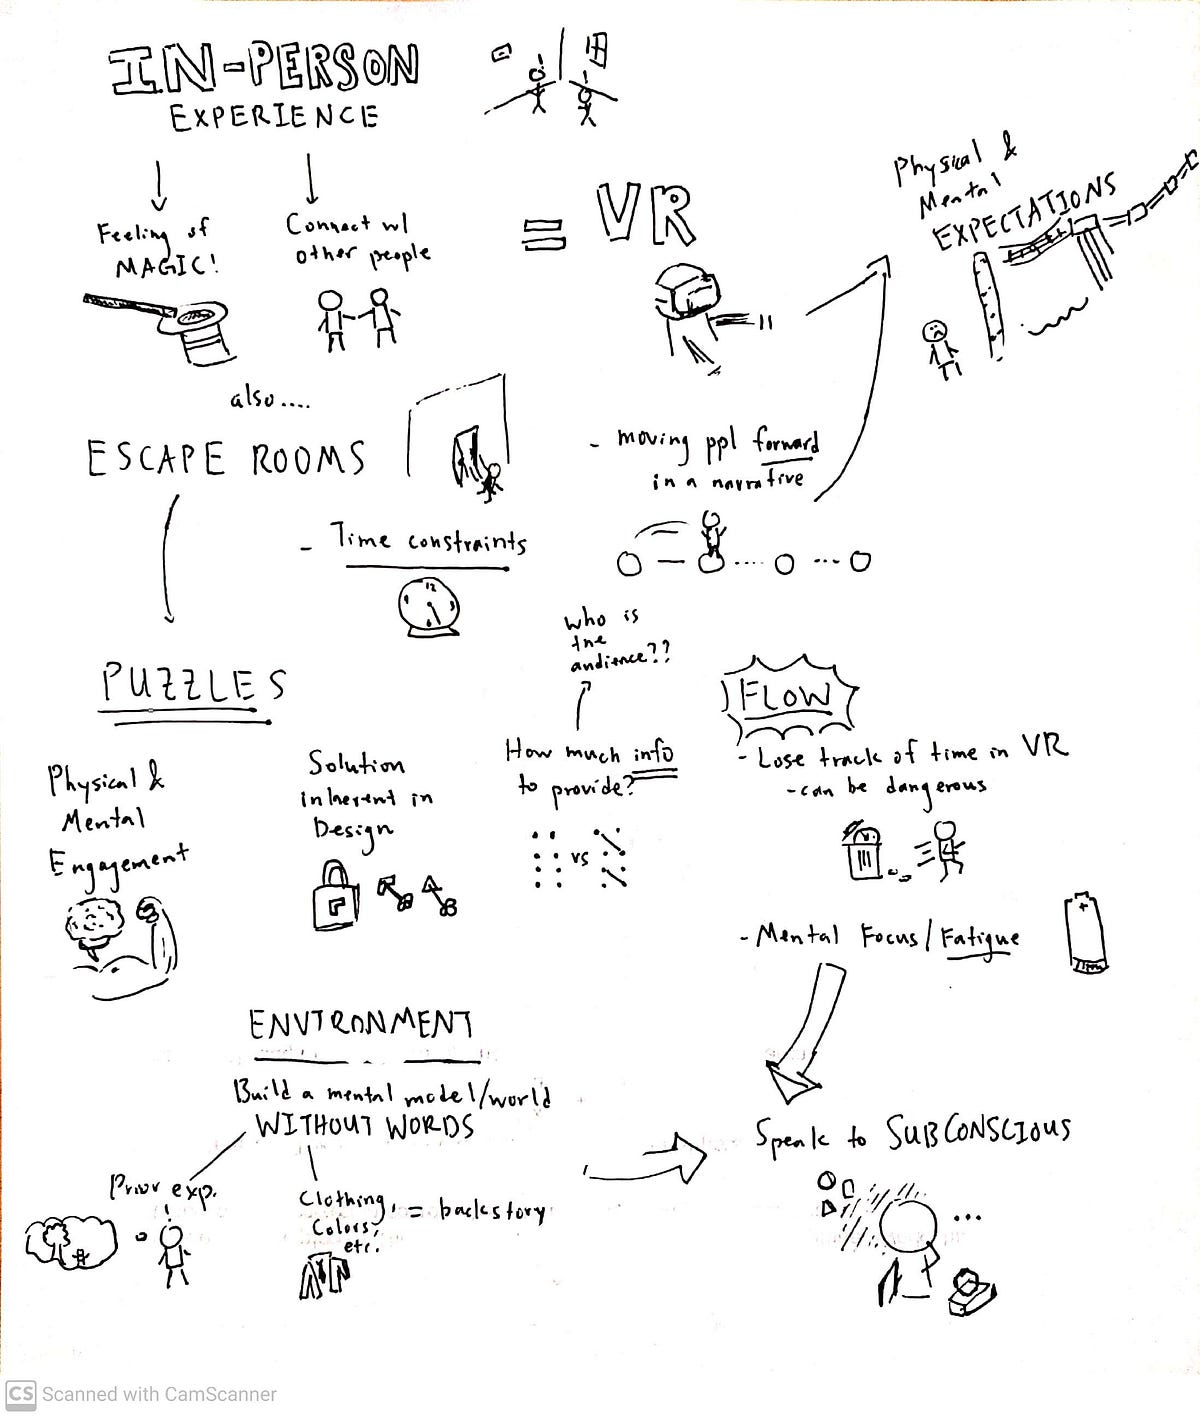 IN-PERSON
EXPERIENCE
Feeling of
MAGIC!
Connect w/
other people
= VR
Physical &
Mental
EXPECTATIONS
also....
ESCAPE ROOMS
- Time constraints
12
- moving ppl forward
in a narrative
PUZZLES
Physical &
Mental
Engagement
Solution
inherent in
Design
who is
the
audience??
How much info
to provide?
vs
FLOW
- Lose track of time in VR
- can be dangerous
- Mental Focus/Fatigue
ENVIRONMENT
Build a mental model/world
WITHOUT WORDS
Prior exp.
Clothing,
Colors,
etc.
= backstory
Speak to SUBCONSCIOUS
CS Scanned with CamScanner